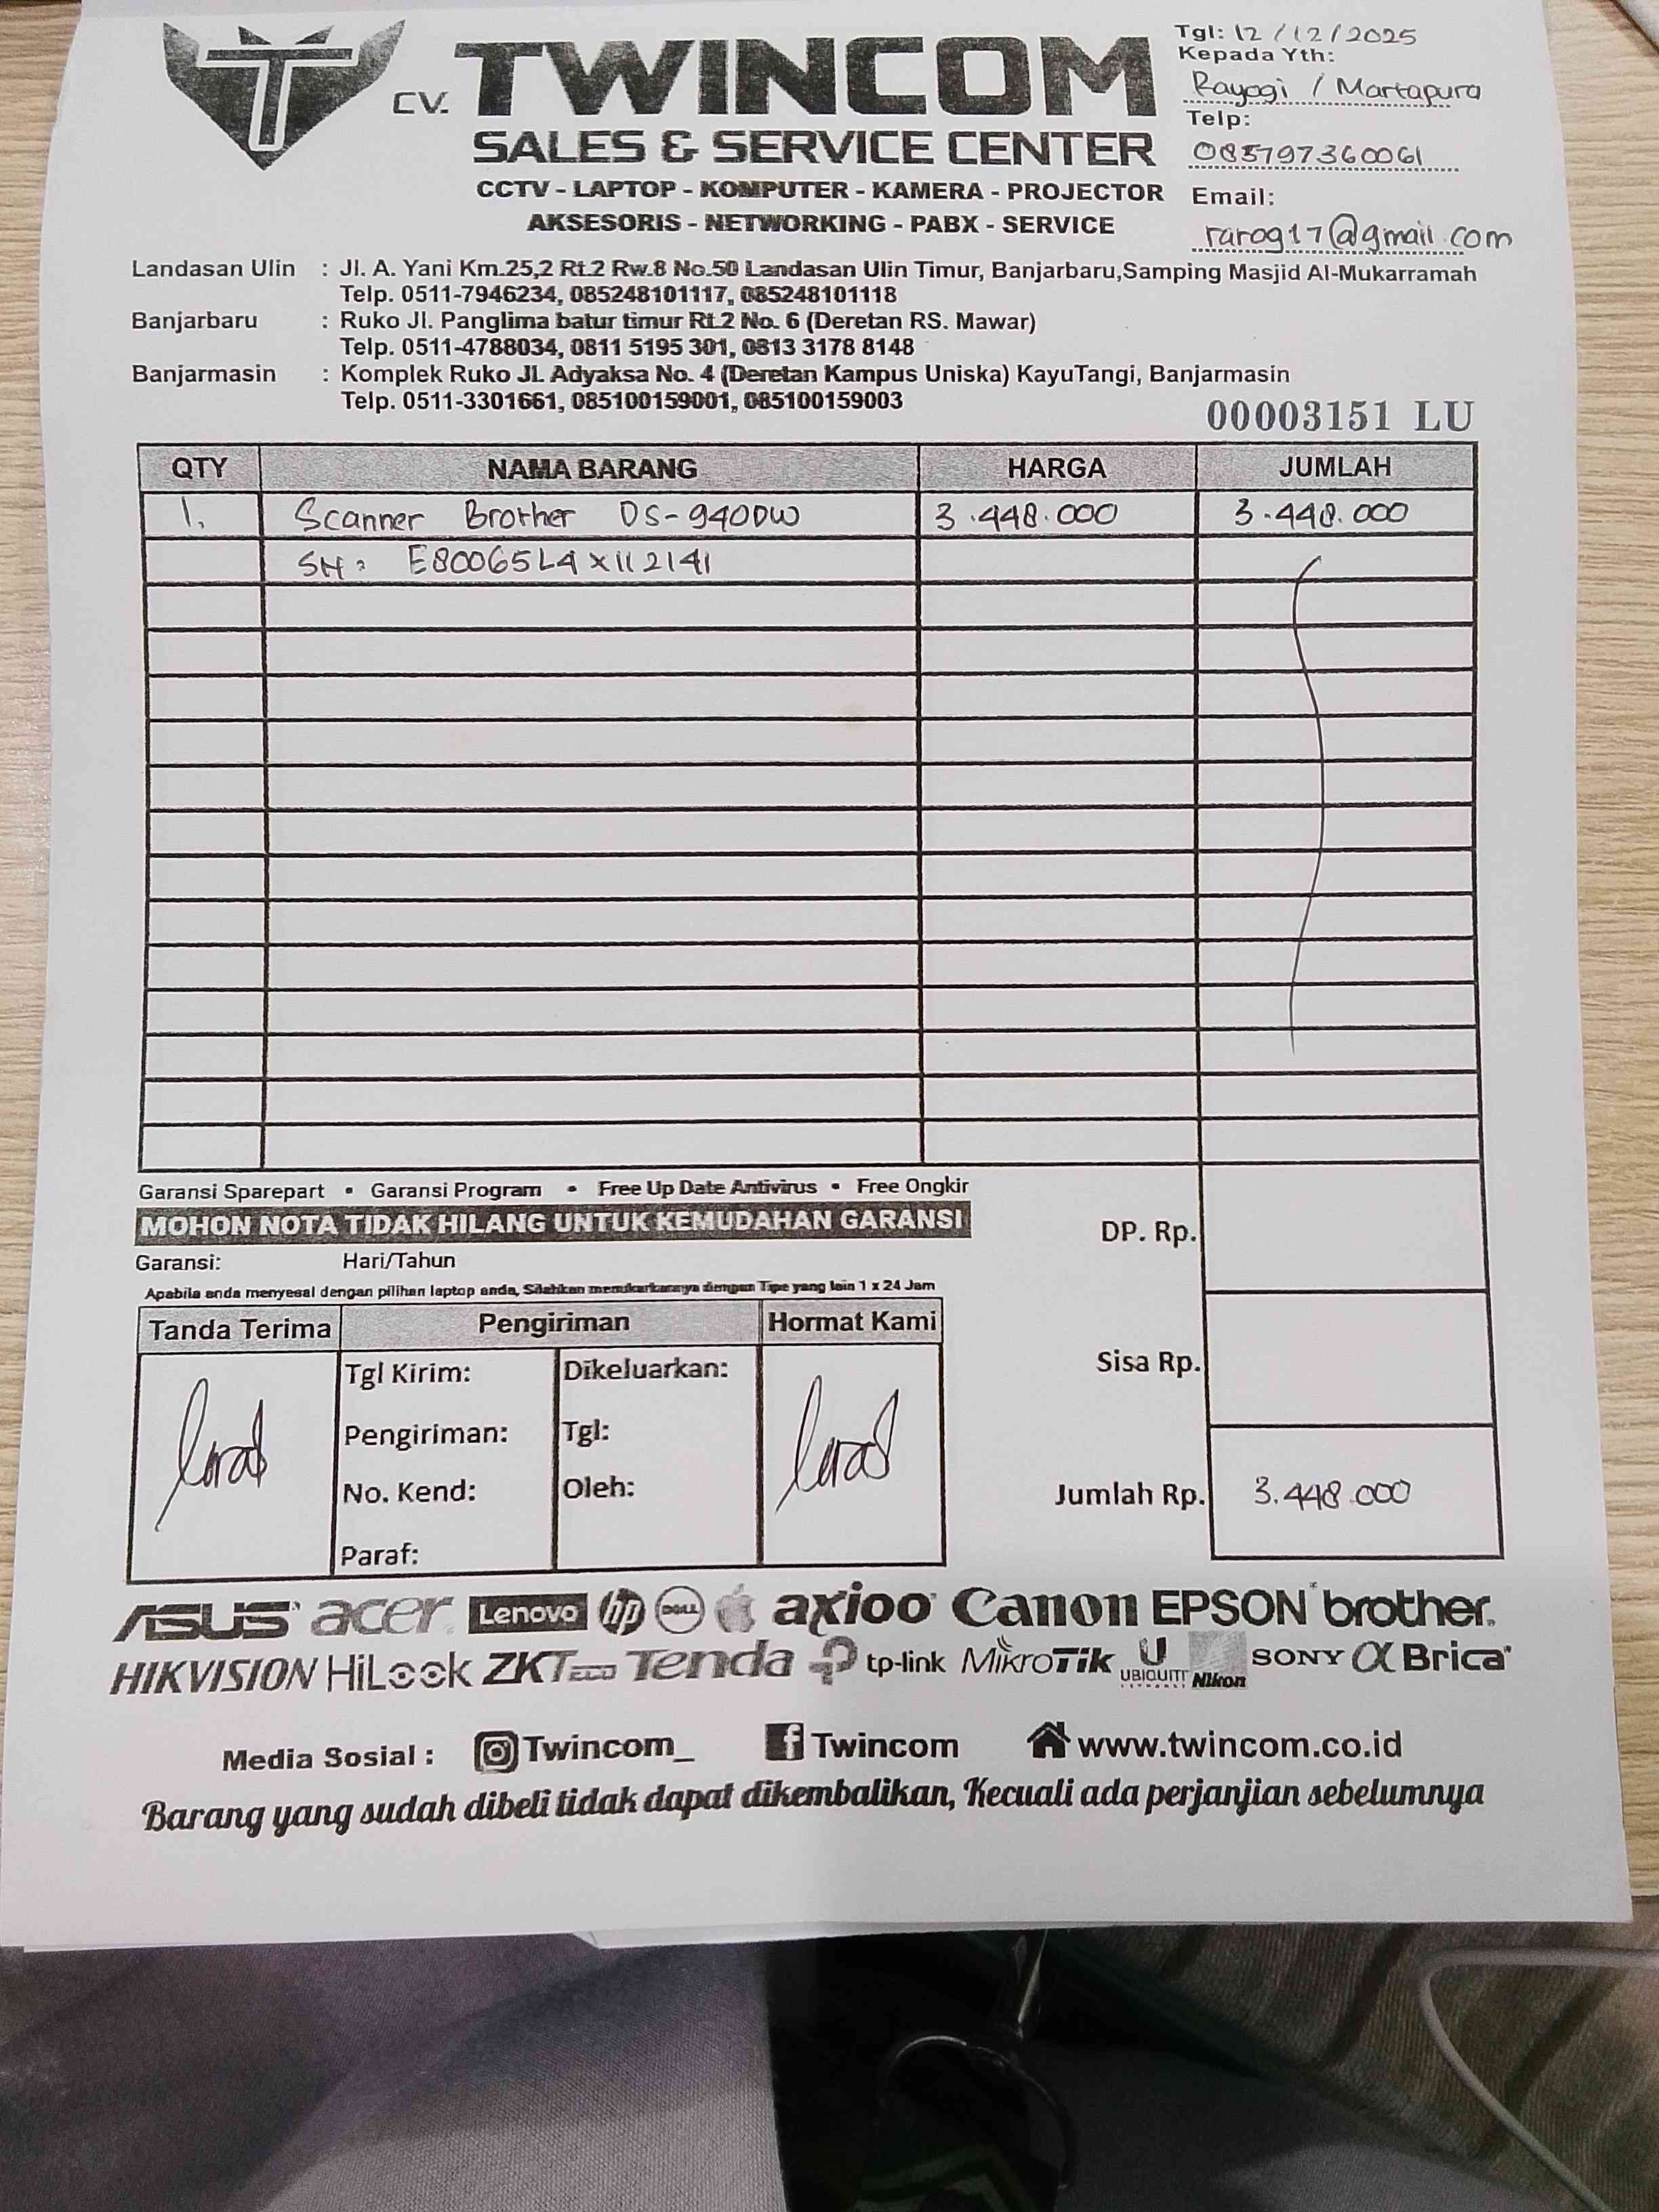 CV. TWINCOM
SALES & SERVICE CENTER
CCTV - LAPTOP - KOMPUTER - KAMERA - PROJECTOR
AKSESORIS - NETWORKING - PABX - SERVICE
Tgl: 12/12/2025
Kepada Yth:
Rayogi / Martapura
Telp:
085797360061
Email:
rarog17@gmail.com
Landasan Ulin : Jl. A. Yani Km.25,2 Rt.2 Rw.8 No.50 Landasan Ulin Timur, Banjarbaru,Samping Masjid Al-Mukarramah
Telp. 0511-7946234, 085248101117, 085248101118
Banjarbaru : Ruko Jl. Panglima batur timur Rt.2 No. 6 (Deretan RS. Mawar)
Telp. 0511-4788034, 0811 5195 301, 0813 3178 8148
Banjarmasin : Komplek Ruko Jl. Adyaksa No. 4 (Deretan Kampus Uniska) KayuTangi, Banjarmasin
Telp. 0511-3301661, 085100159001, 085100159003
00003151 LU
QTY NAMA BARANG HARGA JUMLAH
1. Scanner Brother DS-940DW 3.448.000 3.448.000
SN: E80065L4X112141
Garansi Sparepart • Garansi Program • Free Up Date Antivirus • Free Ongkir
MOHON NOTA TIDAK HILANG UNTUK KEMUDAHAN GARANSI
Garansi: Hari/Tahun
Apabila anda menyesal dengan pilihan laptop anda, Silahkan menukarkannya dengan Tipe yang lain 1 x 24 Jam
DP. Rp.
Sisa Rp.
Jumlah Rp. 3.448.000
Tanda Terima Pengiriman Hormat Kami
Tgl Kirim: Dikeluarkan:
Pengiriman: Tgl:
No. Kend: Oleh:
Paraf:
ASUS acer Lenovo hp DELL axioo Canon EPSON brother
HIKVISION HiLook ZKTeco Tenda tp-link MikroTik UBIQUITI Nikon SONY α Brica
Media Sosial : Twincom_ Twincom www.twincom.co.id
Barang yang sudah dibeli tidak dapat dikembalikan, Kecuali ada perjanjian sebelumnya